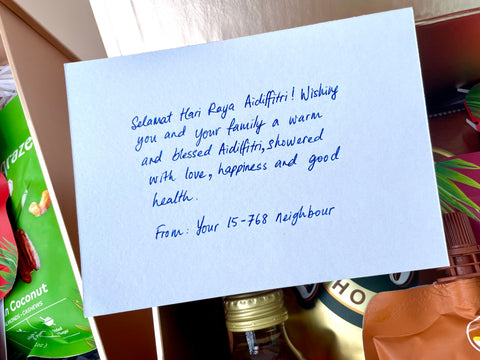 Selamat Hari Raya Aidiffitri! Wishing
you and your family a warm
and blessed Aidilfitri, showered
with love, happiness and good
health.
From: Your 15-768 neighbour
raze
Coconut
ALMONDS • CASHEWS
HO